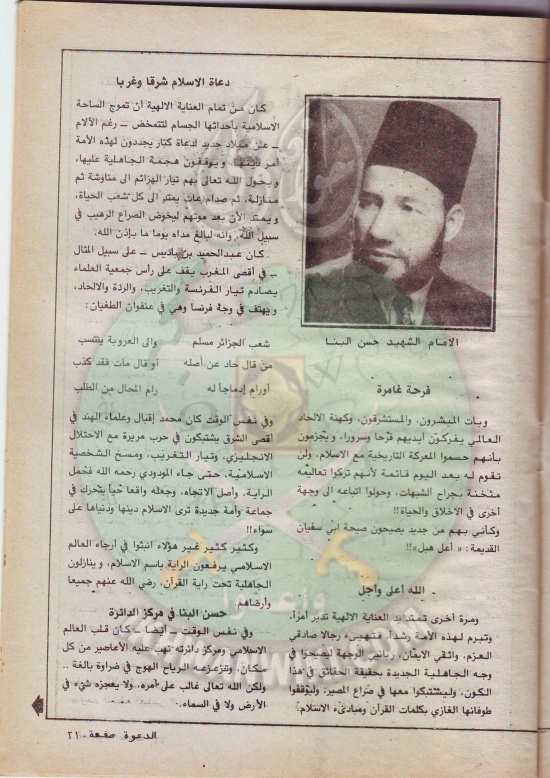 الامام الشهيد حسن البنا
فرحة غامرة
وبات المبشرون، والمستشرقون، وكهنة الالحاد
العالمي يفركون أيديهم فرحا وسرورا، ويجزمون
بأنهم حسموا المعركة التاريخية مع الاسلام، ولن
تقوم له بعد اليوم قائمة لأنهم تركوا تعاليمه
مثخنة بجراح الشبهات، وحولوا اتباعه الى وجهة
أخرى في الأخلاق والحياة!!
وكأني بهم من جديد يصيحون صيحة ابي سفيان
القديمة: « أعل هبل»!!
الله أعلى وأجل
ومرة أخرى تمتد يد العناية الالهية تدبر أمرا،
وتبرم لهذه الأمة رشدا، فتهيىء رجالا صادقي
العزم، واثقي الايمان، رباني الوجهة ليصيحوا في
وجه الجاهلية الجديدة بحقيقة الحقائق في هذا
الكون، وليشتبكوا معها في صراع المصير، وليوقفوا
طوفانها الغازي بكلمات القرآن ومبادىء الاسلام.
دعاة الاسلام شرقا وغربا
كان من تمام العناية الالهية أن تموج الساحة
الاسلامية بأحداثها الجسام لتتمخض ــ رغم الآلام
ــ عن ميلاد جديد لدعاة كبار يجددون لهذه الأمة
أمر دينها، ويوقفون هجمة الجاهلية عليها،
ويحول الله تعالى بهم تيار الهزائم الى مناوشة ثم
منازلة، ثم صدام عات يمتد الى كل شعب الحياة،
ويمتد الآن بعد موتهم ليخوض الصراع الرهيب في
سبيل الله، وانه لبالغ مداه يوما ما بإذن الله.
كان عبدالحميد بن باديس ــ على سبيل المثال
ــ في أقصى المغرب يقف على رأس جمعية العلماء
يصادم تيار الفرنسة والتغريب، والردة والالحاد،
ويهتف في وجه فرنسا وهي في عنفوان الطغيان:
شعب الجزائر مسلم والى العروبة ينتسب
من قال حاد عن أصله أو قال مات فقد كذب
أورام إدماجا له رام المحال من الطلب
وفي نفس الوقت كان محمد إقبال وعلماء الهند في
أقصى الشرق يشتبكون في حرب مريرة مع الاحتلال
الانجليزي، وتيار التغريب، ومسخ الشخصية
الاسلامية، حتى جاء المودودي رحمه الله فحمل
الراية، وأصل الاتجاه، وجعله واقعا حيا يتحرك في
جماعة وأمة جديدة ترى الاسلام دينها ودنياها على
سواء!!
وكثير كثير غير هؤلاء انبثوا في أرجاء العالم
الاسلامي يرفعون الراية باسم الاسلام، وينازلون
الجاهلية تحت راية القرآن، رضي الله عنهم جميعا
وأرضاهم.
حسن البنا في مركز الدائرة
وفي نفس الوقت ــ أيضا ــ كان قلب العالم
الاسلامي ومركز دائرته تهب عليه الأعاصير من كل
مكان، وتزعزعه الرياح الهوج في ضراوة بالغة ..
ولكن الله تعالى غالب على أمره، ولا يعجزه شيء في
الأرض ولا في السماء.
الدعوة صفحة ٢١